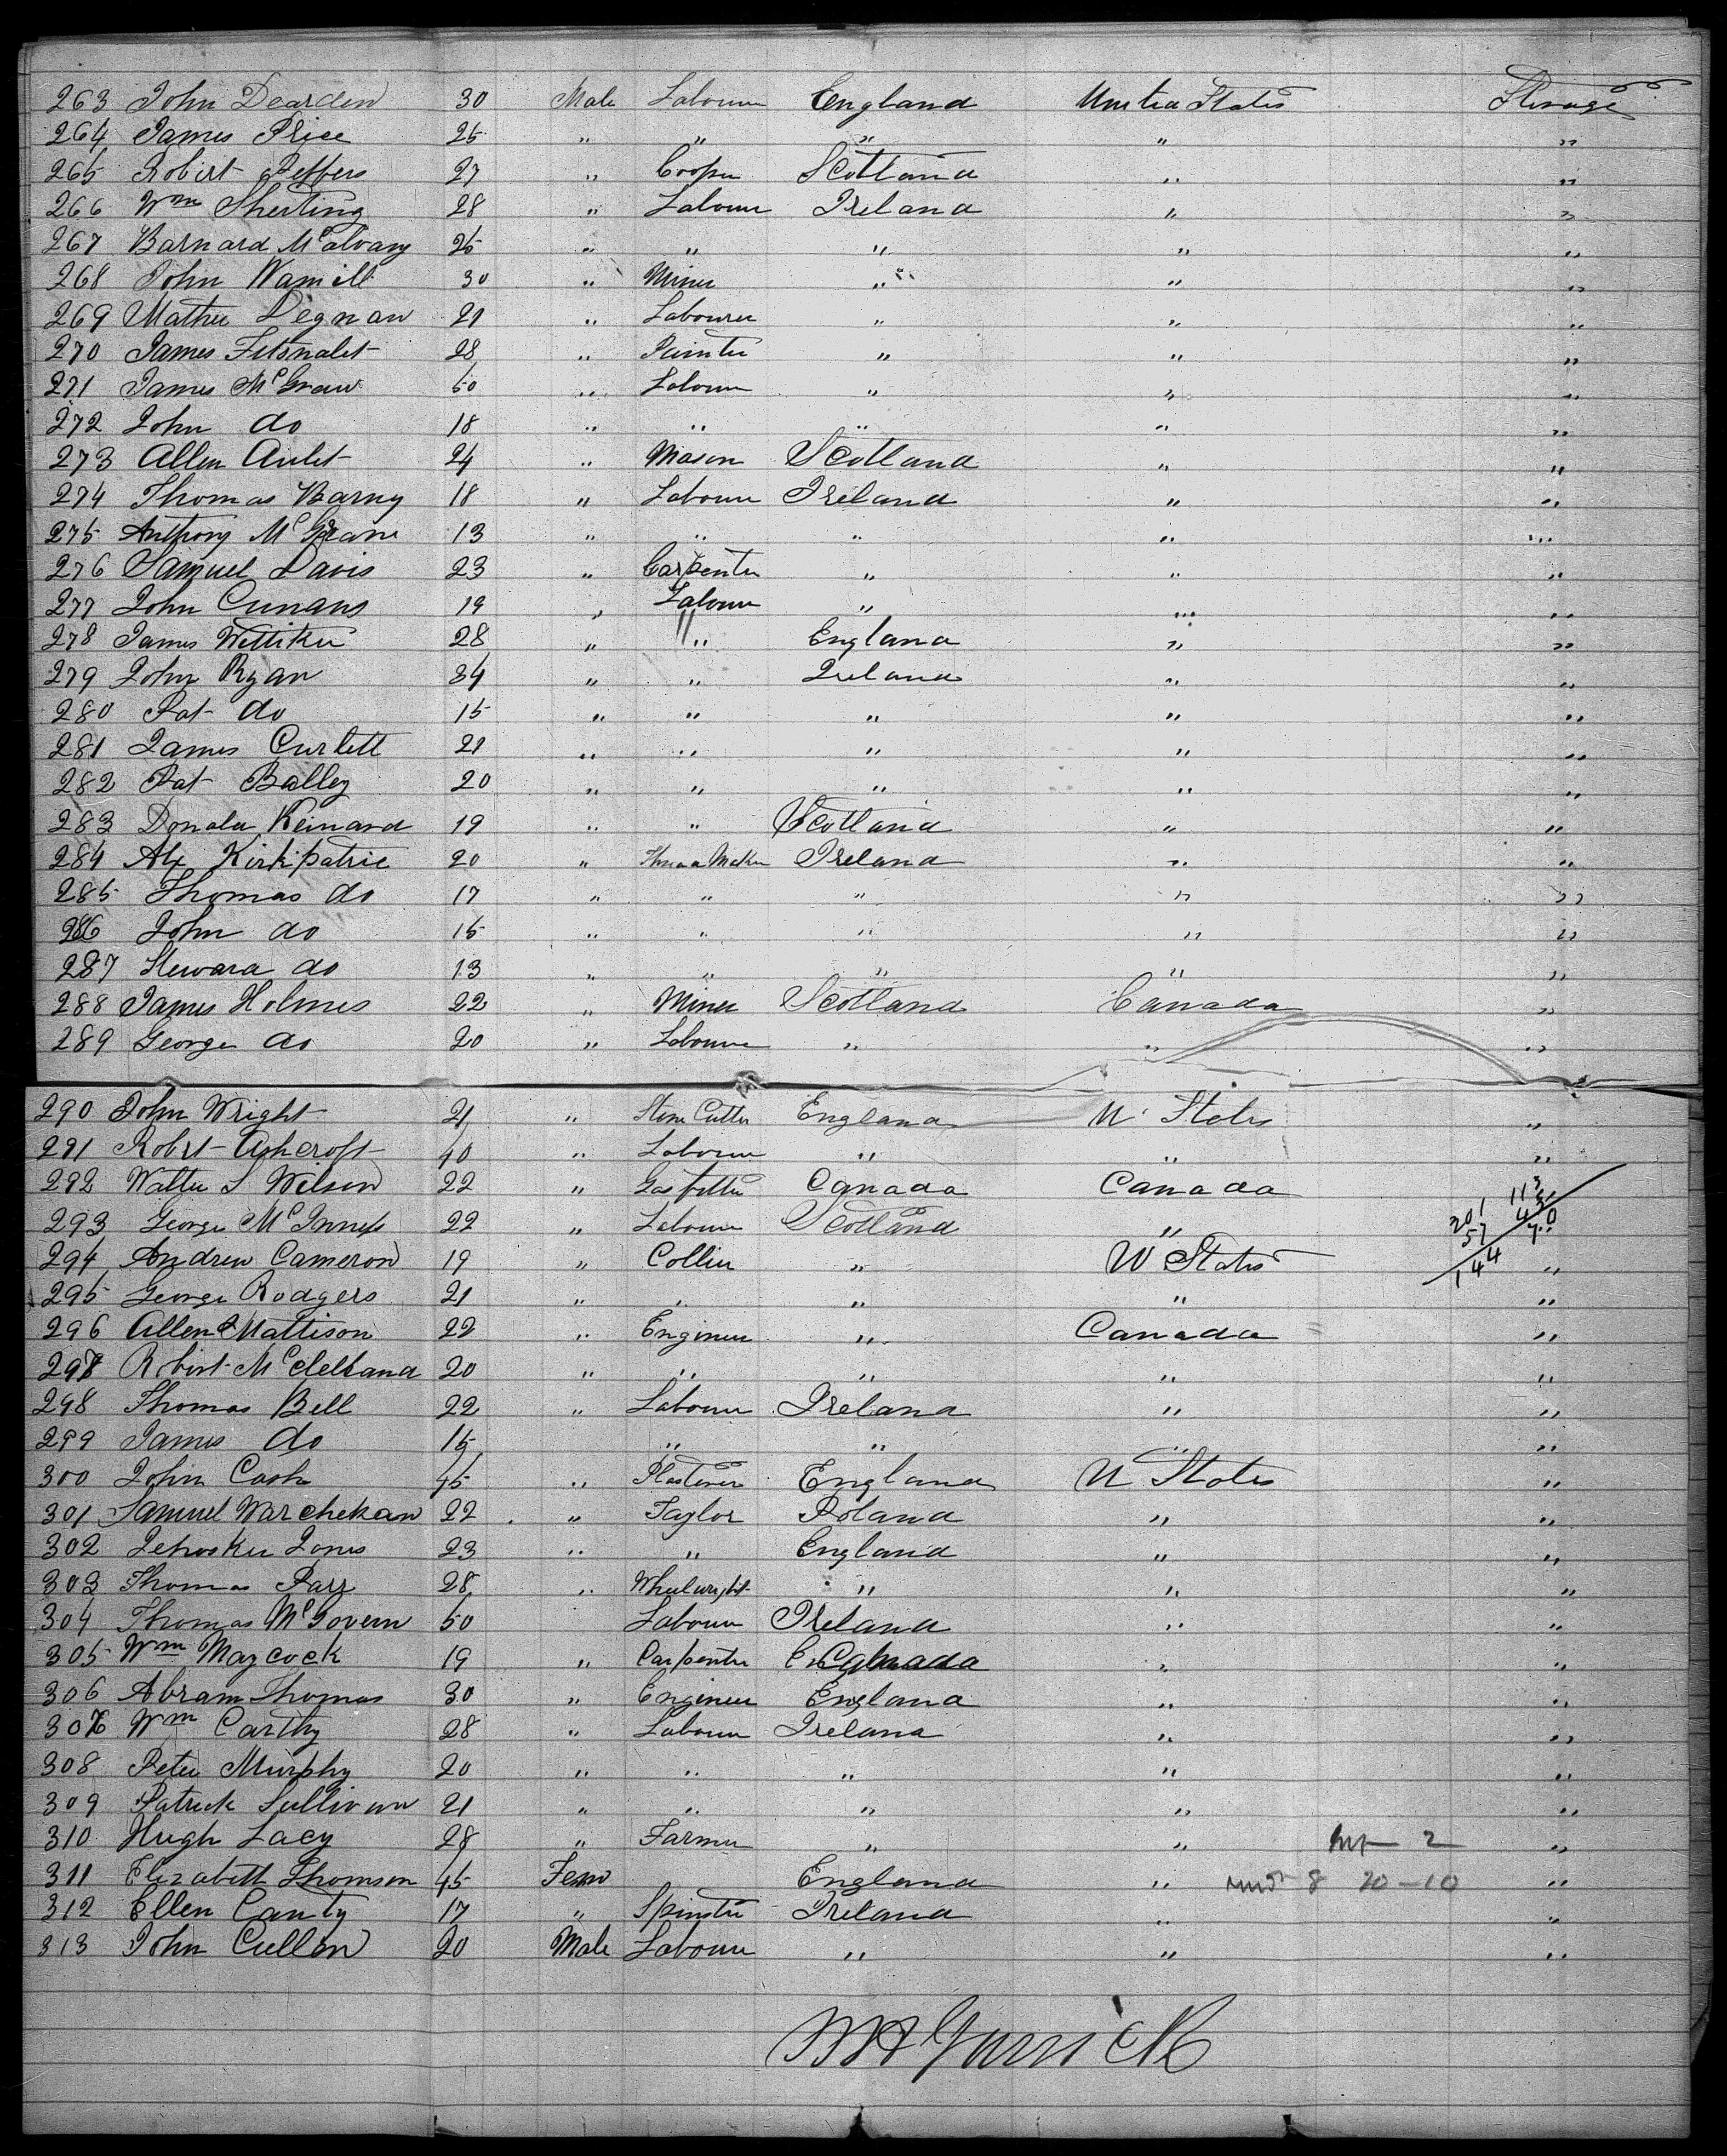 263 John Dearden 30 Male Labourer England United States Steerage
264 James Price 25 " " " " "
265 Robert Peffers 27 " Cooper Scotland " "
266 Wm Sherting 28 " Labourer Ireland " "
267 Barnard McAlvany 25 " " " " "
268 John Wamill 30 " Miner " " "
269 Mathu Degnan 21 " Labourer " " "
270 James Fitsnalet 28 " Painter " " "
271 James McGraw 50 " Labourer " " "
272 John do 18 " " " " "
273 Allen Aulet 24 " Mason Scotland " "
274 Thomas Barny 18 " Labourer Ireland " "
275 Anthony McGrane 13 " " " " "
276 Samuel Davis 23 " Carpenter " " "
277 John Cunans 19 " Labourer " " "
278 James Wittiker 28 " " England " "
279 John Ryan 34 " " Ireland " "
280 Pat do 15 " " " " "
281 James Curlett 21 " " " " "
282 Pat Balley 20 " " " " "
283 Donald Keinard 19 " " Scotland " "
284 Alx Kirkpatric 20 " Maker Ireland " "
285 Thomas do 17 " " " " "
286 John do 15 " " " " "
287 Steward do 13 " " " " "
288 James Holmes 22 " Miner Scotland Canada "
289 George do 20 " Labourer " " "
290 John Wright 21 " Stone Cutter England U States "
291 Robert Ashcroft 40 " Labourer " " "
292 Walter S Wilson 22 " Gas fitter Canada Canada
293 George McInnes 22 " Labourer Scotland "
294 Andrew Cameron 19 " Collier " U States "
295 George Rodgers 21 " " " " "
296 Allen Mattison 22 " Engineer " Canada "
297 Robert McClelland 20 " " " " "
298 Thomas Bell 22 " Labourer Ireland " "
299 James do 15 " " " "
300 John Cash 45 " Plasterer England U States "
301 Samuel Warchekan 22 " Taylor Poland " "
302 Jones 23 " " England " "
303 Thomas Parr 28 " Wheelwright " " "
304 Thomas McGovern 50 Labourer Ireland " "
305 Wm Maycock 19 " Carpenter Canada " "
306 Abram Thomas 30 " Engineer England " "
307 Wm Carthy 28 " Labourer Ireland " "
308 Peter Murphy 20 " " " " "
309 Patrick Sullivan 21 " " " " "
310 Hugh Lacy 28 " Farmer " " 2 "
311 Elizabeth Thomson 45 Fem England " 8 20-10 "
312 Ellen Canty 17 " Spinster Ireland " "
313 John Cullen 20 Male Labourer " " "